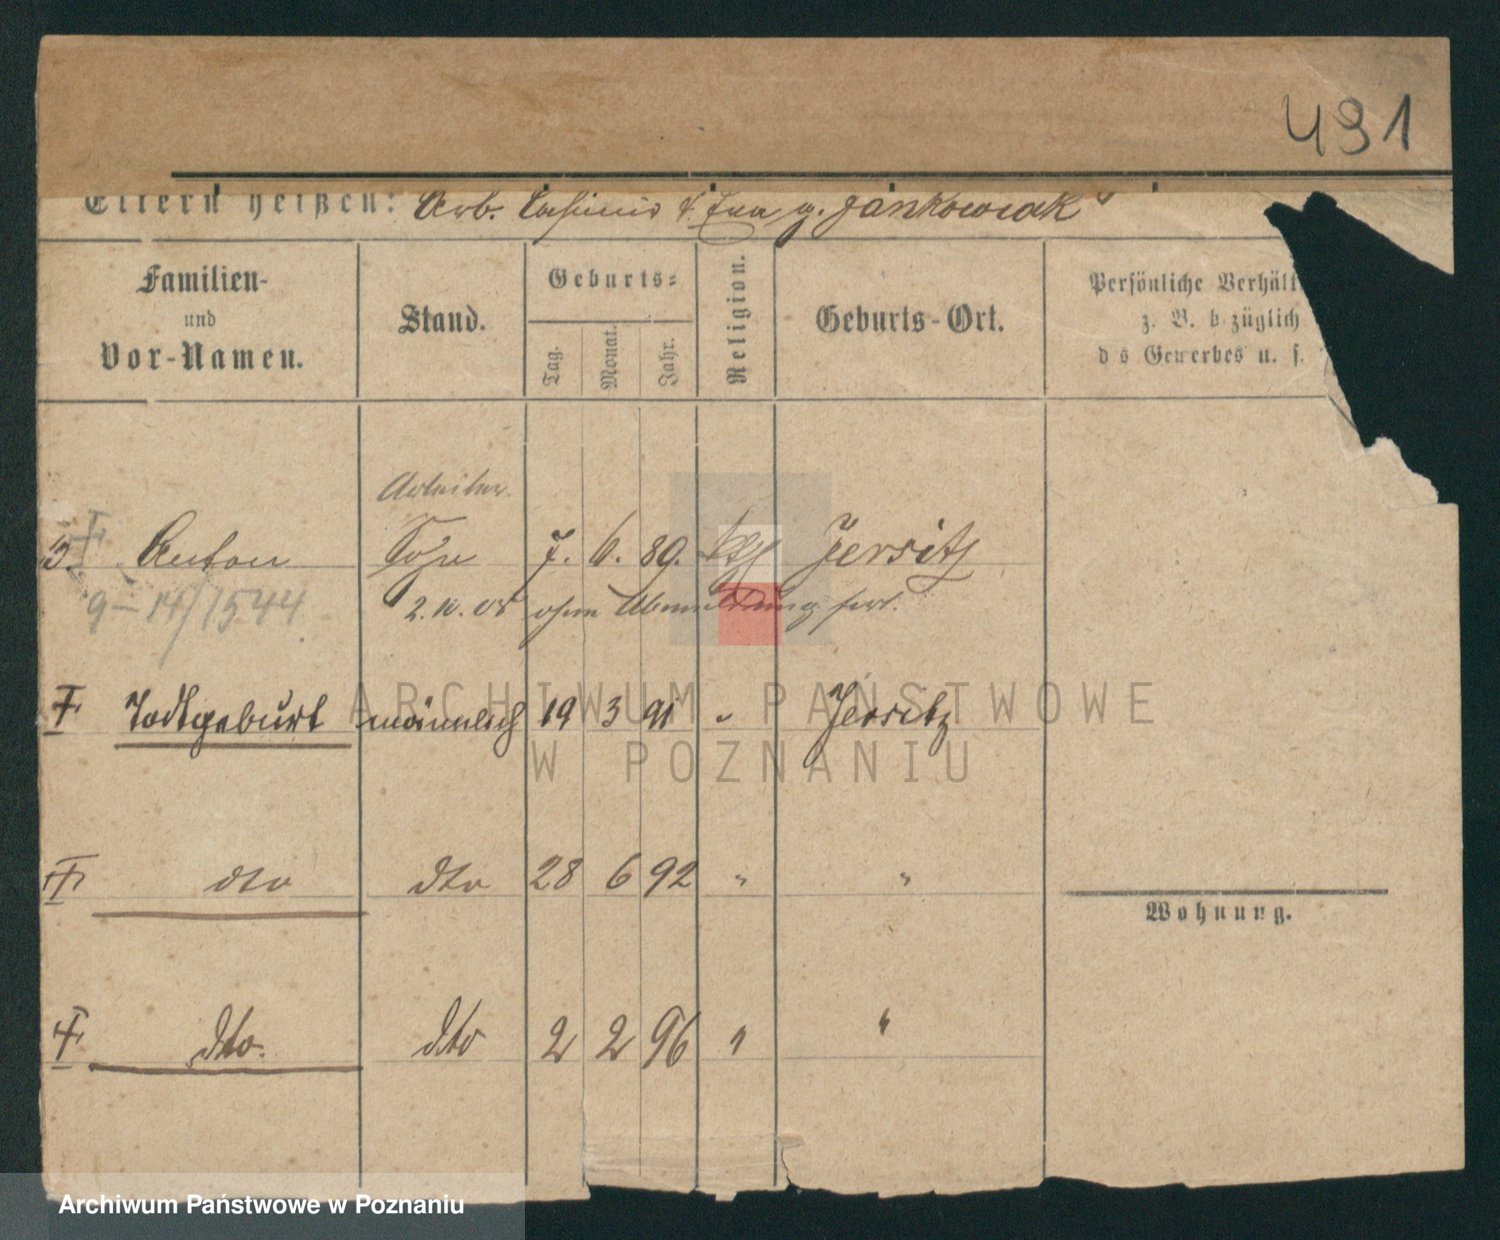 491
Eltern heißen: Arb. Casimir & Eva g. Jankowiak
Familien- und Vor-Namen.
Stand.
Geburts=
Tag.
Monat.
Jahr.
Religion.
Geburts-Ort.
Persönliche Verhält
z. B. b züglich
d s Gewerbes u. s.
Arbeiter.
3 Anton Sohn 7. 6. 89. kth Jersitz
9-14/1544
2.10.05 ohne Abmeldung fort.
Todtgeburt männlich 19 3 91 " Jersitz
dto dto 28 6 92 " "
Wohnung.
dto. dto 2 2 96 " "
ARCHIWUM PAŃSTWOWE
W POZNANIU
Archiwum Państwowe w Poznaniu